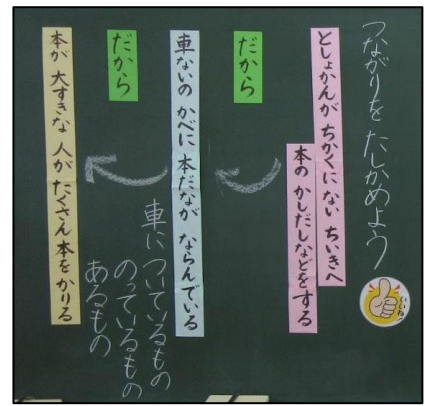 つながりを たしかめよう
としょかんが ちかくに ない ちいきへ
本の かしだしなどを する
だから
車ないの かべに 本だなが ならんでいる
車に ついているもの
のっているもの
あるもの
だから
本が 大すきな 人が たくさん 本を かりる